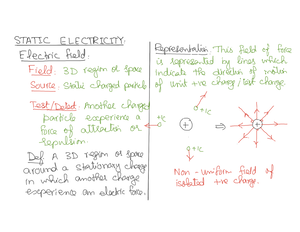 STATIC ELECTRICITY:
Electric field:
Field: 3D region or space
Source: Static charged particle
Test/Detect: Another charged
particle experience a
force of attraction or
repulsion.
Def A 3D region or space
around a stationary charge
in which another charge
experience an electric force.
Representation: This field of force
is represented by lines which
indicate the direction of motion
of unit +ve charge/test charge.
+1C
+1C
+1C
+
⇒
+
Non-uniform field of
isolated +ve charge.